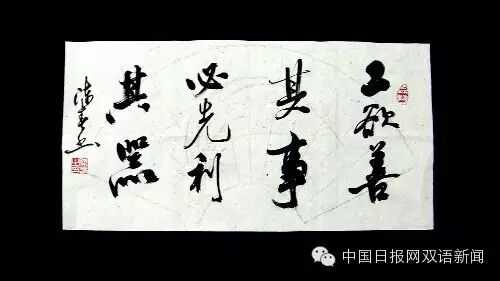 工欲善
其事
必先利
其器
中国日报网双语新闻